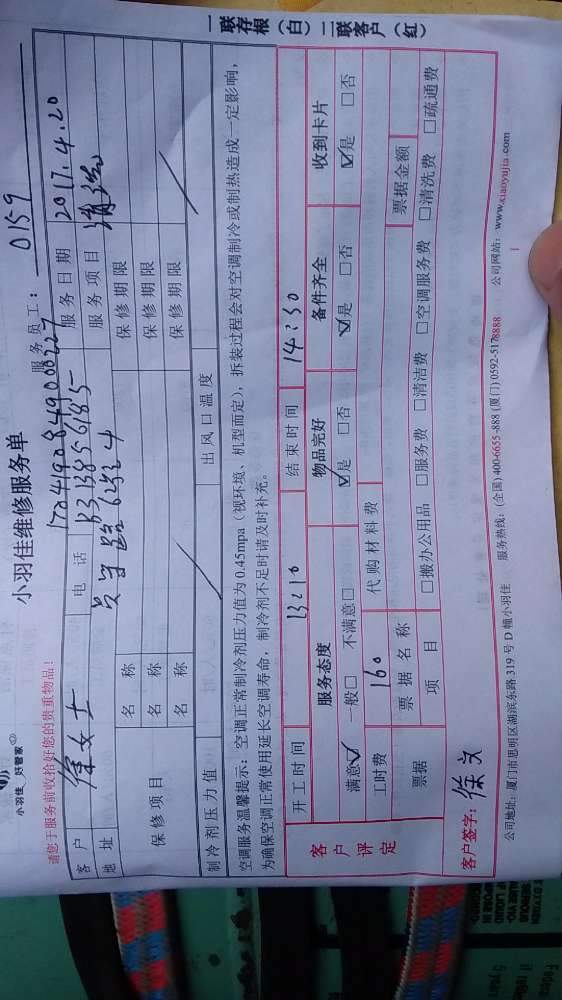 小羽佳 好管家
小羽佳维修服务单
服务员工： 0159
请您于服务前收拾好您的贵重物品！
17041908490 00227
客户 徐女士 电话 服务日期 2017.4.20
地址 服务项目 清洗
保修项目 名称 保修期限
名称 保修期限
名称 保修期限
制冷剂压力值 出风口温度
空调服务温馨提示：空调正常制冷剂压力值为0.45mpa（视环境、机型而定），拆装过程会对空调制冷或制热造成一定影响，
为确保空调正常使用延长空调寿命，制冷剂不足时请及时补充。
客户评定 开工时间 13:10 结束时间 14:30
服务态度 物品完好 备件齐全 收到卡片
满意☑ 一般□ 不满意□ ☑是 □否 ☑是 □否 ☑是 □否
工时费 160 代购材料费
票据 票据名称 票据金额
项目 □搬办公用品 □服务费 □清洁费 □空调服务费 □清洗费 □疏通费
客户签字：徐文
公司地址：厦门市思明区湖滨东路319号D幢小羽佳 服务热线：(全国) 400-6655-888 (厦门) 0592-5178888 公司网站：www.xiaoyujia.com
一联存根（白）二联客户（红）